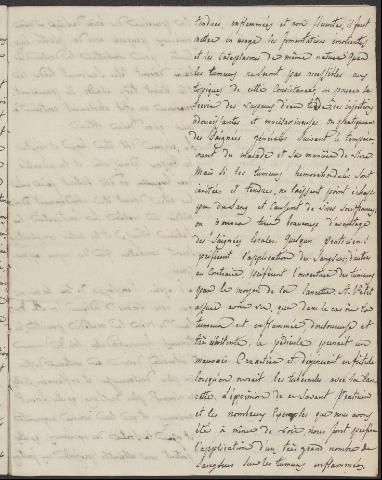 tendues, enflammées et non fluentes, il faut
mettre en usage les fomentations émolientes
et les cataplasmes de même nature. Quand
les tumeurs ne seront pas accessibles aux
topiques de cette consistance, on pourra se
servir des vapeurs d'eau tiède, des injections
adoucissantes et mucilagineuses on pratiquera
des saignées générales suivant le tempéra-
ment du malade et sa manière de vivre
Mais si les tumeurs hémorrhoïdales sont
irritées et tendues, ne laissent point échapper
que du sang et causent de vives souffrances,
on donnera très beaucoup d'avantage
des saignées locales. Quelques praticiens
préfèrent l'application des sangsues, d'autres
au contraire, préfèrent l'ouverture des tumeurs
par le moyen de la lancette. A. Petit
assure avoir vu, que dans le cas où la
tumeur est enflammée douloureuse et
très saillante, le pédicule prenait un
mauvais caractère et dégénérait en fistule
lorsqu'on ouvrait les tubercules avec la lan-
cette. L'opinion de ce savant praticien
et les nombreux exemples que nous avons
été à même de voir, nous font préférer
l'application d'un très grand nombre de
sangsues sur les tumeurs enflammées